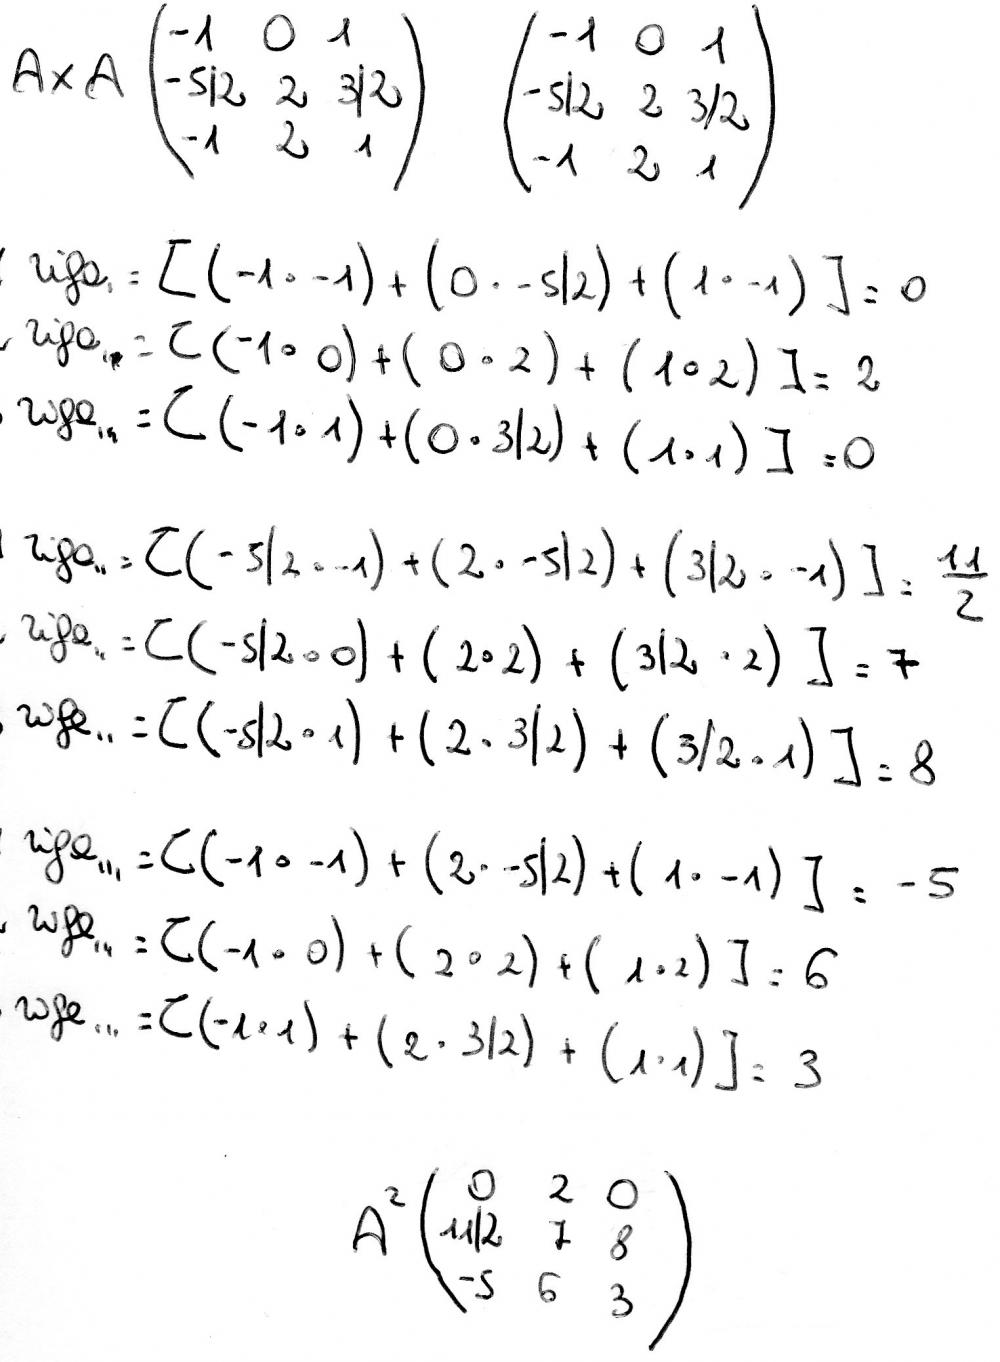 A×A (-1 0 1 (-1 0 1
-5/2 2 3/2) -5/2 2 3/2)
-1 2 1 -1 2 1
riga, = [(-1·-1)+(0·-5/2)+(1·-1)]=0
riga,, = [(-1·0)+(0·2)+(1·2)]=2
riga,, = [(-1·1)+(0·3/2)+(1·1)]=0
riga,, = [(-5/2·-1)+(2·-5/2)+(3/2·-1)]=11/2
riga,, = [(-5/2·0)+(2·2)+(3/2·2)]=7
riga,, = [(-5/2·1)+(2·3/2)+(3/2·1)]=8
riga,,, = [(-1·-1)+(2·-5/2)+(1·-1)]=-5
riga,,, = [(-1·0)+(2·2)+(1·2)]=6
riga,,, = [(-1·1)+(2·3/2)+(1·1)]=3
A² (0 2 0
11/2 7 8
-5 6 3)